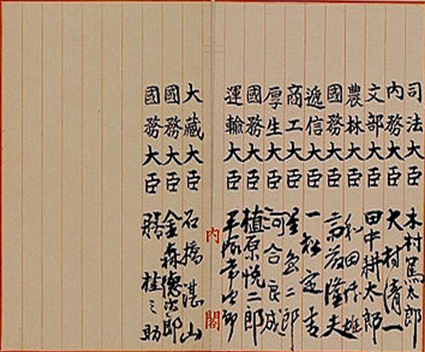 司法大臣 木村篤太郎
内務大臣 大村清一
文部大臣 田中耕太郎
農林大臣 和田博雄
國務大臣 斎藤隆夫
遞信大臣 一松定吉
商工大臣 星島二郎
厚生大臣 河合良成
國務大臣 植原悦二郎
運輸大臣 平塚常次郎
内閣
大藏大臣 石橋湛山
國務大臣 金森德次郎
國務大臣 膳桂之助